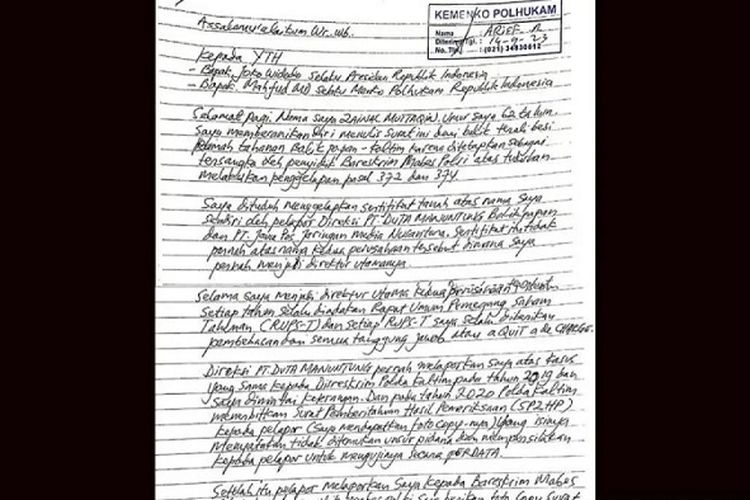 Assalamu'alaikum Wr. wb.
KEMENKO POLHUKAM
Nama : ARIEF R
Diterima Tgl. : 14-9-23
No. Tlp. : (021) 34830612
Kepada YTH
- Bapak Joko Widodo selaku Presiden Republik Indonesia
- Bapak Mahfud MD selaku Menko Polhukam Republik Indonesia
Selamat pagi. Nama saya ZAINAL MUTTAQIN. Umur saya 62 tahun.
Saya memberanikan diri menulis surat ini dari balik terali besi
rumah tahanan Balikpapan - Kaltim karena ditetapkan sebagai
tersangka oleh penyidik Bareskrim Mabes Polri atas tuduhan
melakukan penggelapan pasal 372 dan 374.
Saya dituduh menggelapkan sertifikat tanah atas nama saya
sendiri oleh pelapor Direksi PT. DUTA MANUNTUNG Balikpapan
dan PT. Jawa Pos Jaringan Media Nusantara. Sertifikat itu tidak
pernah atas nama kedua perusahaan tersebut dimana saya
pernah menjadi direktur utamanya.
Selama saya menjadi direktur utama kedua perusahaan tersebut
setiap tahun selalu diadakan Rapat Umum Pemegang Saham
Tahunan (RUPS-T) dan setiap RUPS-T saya selalu diberikan
pembebasan dari semua tanggung jawab atau aQUiT a de CHARGE.
Direksi PT. DUTA MANUNTUNG pernah melaporkan saya atas kasus
yang sama kepada Direskrim Polda Kaltim pada tahun 2019 dan
saya dimintai keterangan. Dan pada tahun 2020 Polda Kaltim
menerbitkan Surat Pemberitahuan Hasil Pemeriksaan (SP2HP)
kepada pelapor (saya mendapatkan foto copy-nya) yang isinya
menyatakan tidak ditemukan unsur pidana dan mempersilakan
kepada pelapor untuk mengujinya secara PERDATA.
Setelah itu pelapor melaporkan saya kepada Bareskrim Mabes